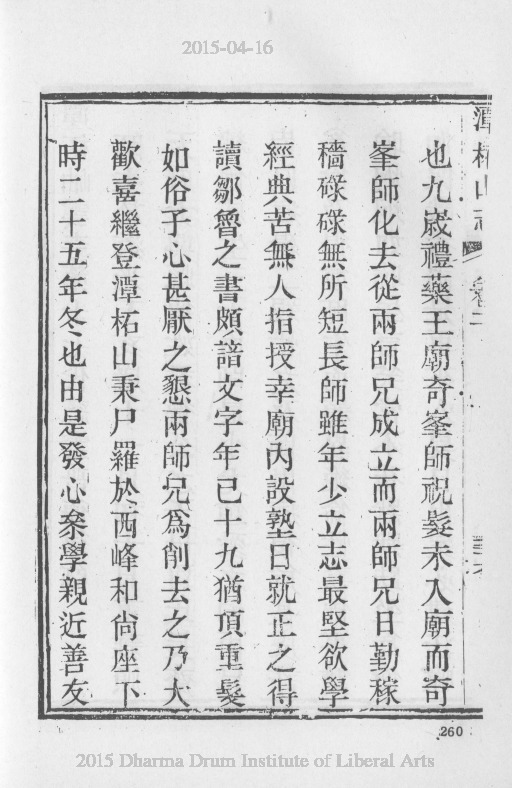 2015-04-16
潭柘山志
卷二
也九歲禮藥王廟奇峯師祝髮未入廟而奇
峯師化去從兩師兄成立而兩師兄日勤稼
穡碌碌無所短長師雖年少立志最堅欲學
經典苦無人指授幸廟內設塾日就正之得
讀鄒魯之書頗諳文字年已十九猶頂重髮
如俗子心甚厭之懇兩師兄為削去之乃大
歡喜繼登潭柘山秉尸羅於西峰和尙座下
時二十五年冬也由是發心叅學親近善友
260
2015 Dharma Drum Institute of Liberal Arts